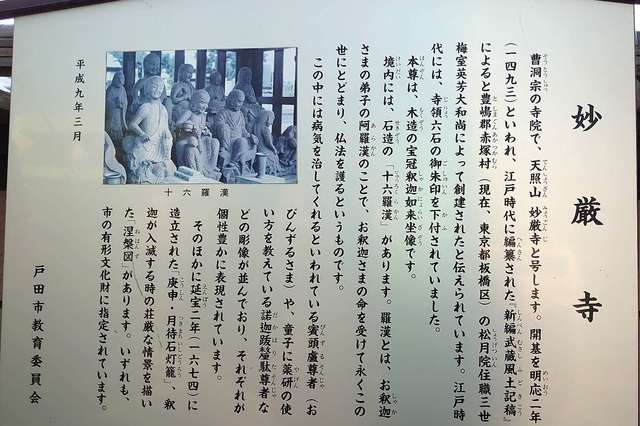 妙厳寺
曹洞宗の寺院で、天照山 妙厳寺と号します。開基を明応二年
（一四九三）といわれ、江戸時代に編纂された『新編武蔵風土記稿』
によると豊嶋郡赤塚村（現在、東京都板橋区）の松月院住職三世
梅室英芳大和尚によって創建されたと伝えられています。江戸時
代には、寺領六石の御朱印を下付されていました。
本尊は、木造の宝冠釈迦如来坐像です。
境内には、石造の「十六羅漢」があります。羅漢とは、お釈迦
さまの弟子の阿羅漢のことで、お釈迦さまの命を受けて永くこの
世にとどまり、仏法を護るというものです。
この中には病気を治してくれるといわれている賓頭盧尊者（お
びんずるさま）や、童子に薬研の使
い方を教えている諾迦跋釐駄尊者な
どの彫像が並んでおり、それぞれが
個性豊かに表現されています。
そのほかに延宝二年（一六七四）に
造立された「庚申・月待石灯籠」、釈
迦が入滅する時の荘厳な情景を描い
た「涅槃図」があります。いずれも、
市の有形文化財に指定されています。
十六羅漢
平成九年三月
戸田市教育委員会